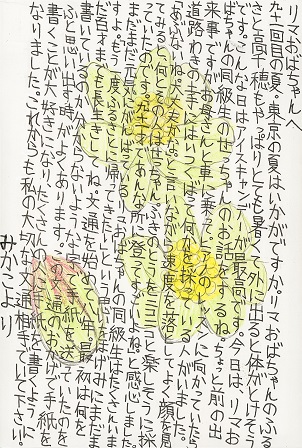 リマおばちゃんへ
九十一回目の夏。東京の夏はいかがですか。リマおばちゃんのふる
さと高千穂もやっぱりとても暑く、外に出ると体がとけそう
です。こんな日はアイスキャンデーが最高です。今日は、リマお
ばちゃんの同級生のせ ちゃんのお話をするね。ちょっと前の出
来事ですが、お母さんと車に乗って に向かっていたら
道路わきの土手にはいつくばって何かを採っている人がいました。
「あぶないね。大丈夫かな。」と言いながら速度を落としてよく顔を見
てみると、何とその ちゃん。ふきのとうをニコニコと楽しそうに採
っていたのです。 あんな所に登れるなんてすごいよね。感心しました。
まだまだ元気 リマおばちゃんの同級生はたくさんいま
すよ。もう一度ふるさとに帰りたいという思いをはげみにまだま
だ百才までも長生きしてね。文通を始めて 年。最初は何を
書いているのか分からないような字で手紙を送っていたのを
ふと思い出す時がよくあります。この文通のおかげで手紙を
書くことが大好きになり、たくさんの人に手紙を書くように
なりました。これからも私の大切な文通相手でいて下さい。
みかこより